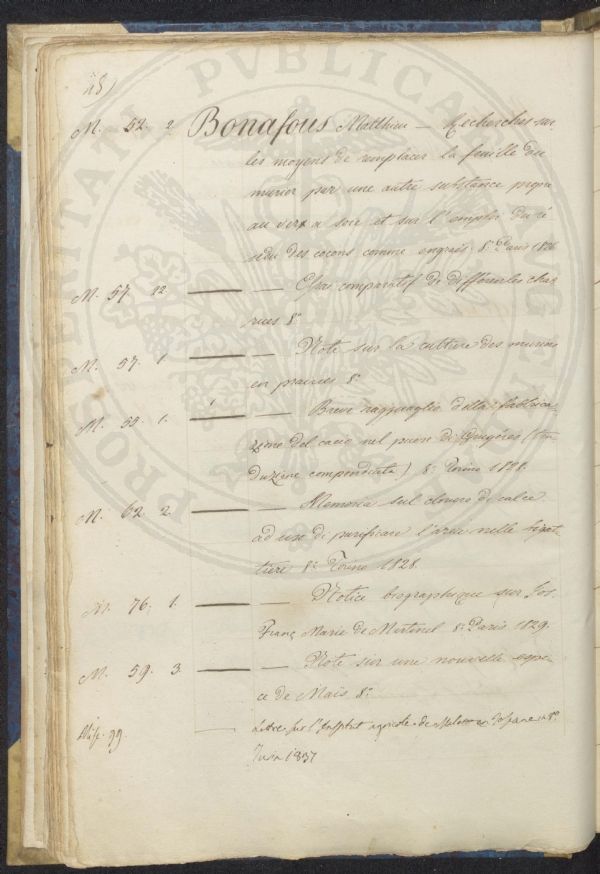 48)
PROSPERITATI PVBLICAE AVGENDAE
M. 52. 2. Bonafous Matthieu — Recherches sur
les moyens de remplacer la feuille du
murier par une autre substance propre
au ver a soie et sur l'emploi du ré
sidu des cocons comme engrais. 8.° Paris 1826
M. 57. 12. — — Essai comparatif de differentes char
rues 8.°
M. 57. 1. — — Note sur la culture des muriers
en prairies 8.°
M. 55. 1. — — Breve ragguaglio della fabbrica
zione del cacio nel paese di Gruyères (tra
duzione compendiata) 8.° Torino
M. 62. 2. — — Memoria sul cloruro di calce
ad uso di purificare l'aria nelle bigat
tiere 8.° Torino 1828.
M. 76. 1. — — Notice biographique sur Jos.
Franç Marie de Martinel 8.° Paris 1829.
M. 59. 3. — — Note sur une nouvelle espe
ce de Mais 8.°
99. — Lettre sur l'Institut agricole de en 8.°
1837